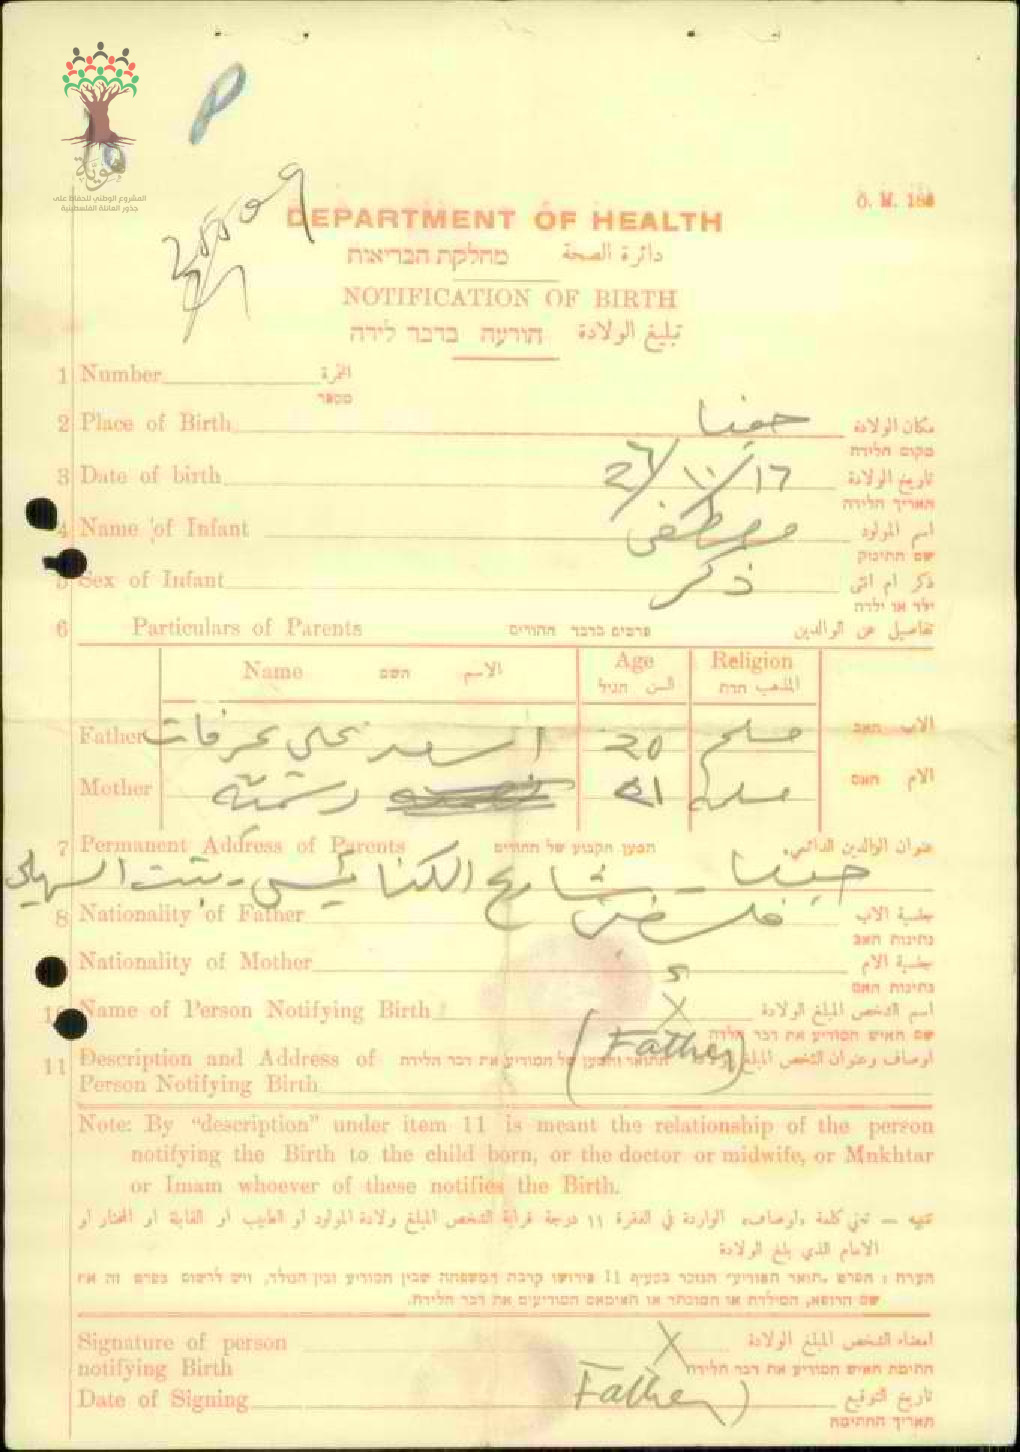 هوية
المشروع الوطني للحفاظ على
جذور العائلة الفلسطينية
O. M. 188
DEPARTMENT OF HEALTH
מחלקת הבריאות دائرة الصحة
NOTIFICATION OF BIRTH
הודעה בדבר לידה تبليغ الولادة
1 Number النمرة
מספר
2 Place of Birth حيفا مكان الولادة
מקום הלידה
3 Date of birth تاريخ الولادة
תאריך הלידה
4 Name of Infant مصطفى اسم المولود
שם התינוק
5 Sex of Infant ذكر ذكر ام انثى
ילד או ילדה
6 Particulars of Parents פרטים בדבר ההורים تفاصيل عن الوالدين
Name השם الاسم Age Religion
السن הגיל المذهب הדת
Father اسعد عرفات 20 مسلم الاب האב
Mother 21 مسلمة الام האם
7 Permanent Address of Parents המען הקבוע של ההורים عنوان الوالدين الدائمي.
حيفا - شارع
8 Nationality of Father جنسية الاب
נתינות האב
Nationality of Mother جنسية الام
נתינות האם
10 Name of Person Notifying Birth X اسم الشخص المبلغ الولادة
שם האיש המודיע את דבר הלידה
(Father)
11 Description and Address of התואר והמען של המודיע את דבר הלידה اوصاف وعنوان الشخص المبلغ الولادة
Person Notifying Birth
Note: By “description” under item 11 is meant the relationship of the person
notifying the Birth to the child born, or the doctor or midwife, or Mukhtar
or Imam whoever of these notifies the Birth.
تنبيه — تعني كلمة «اوصاف» الواردة في الفقرة ١١ درجة قرابة الشخص المبلغ ولادة المولود او الطبيب او القابلة او المختار او
الامام الذي بلغ الولادة
הערה: הפרט „תואר המודיע״ הנזכר בסעיף 11 פירושו קרבת המשפחה שבין המודיע ובין הנולד, ויש לרשום בפרט זה את
שם הרופא, המילדת או המוכתר או האימאם המודיעים את דבר הלידה.
Signature of person X امضاء الشخص المبلغ الولادة
notifying Birth חתימת האיש המודיע את דבר הלידה
Date of Signing Father) تاريخ التوقيع
תאריך החתימה